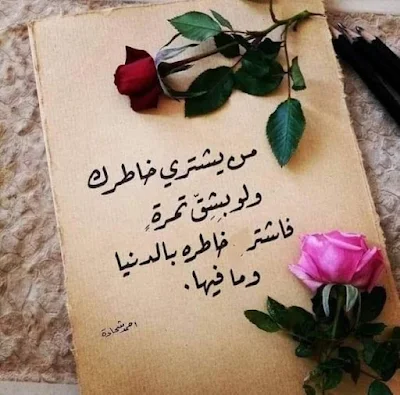 من يشتري خاطرك
ولو بِشِقّ تمرةٍ
فاشترِ خاطره بالدنيا
وما فيها.
احمد شحادة